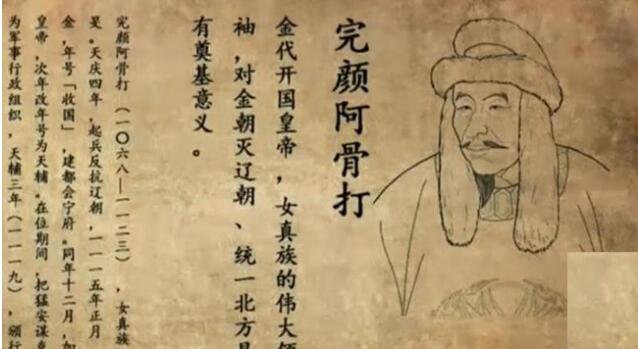 完颜阿骨打
金代开国皇帝，女真族的伟大领
袖，对金朝灭辽朝、统一北方具
有奠基意义。
完颜阿骨打（一〇六八—一一二三），女真族
旻。天庆四年，起兵反抗辽朝，一一一五年正月
金，年号「收国」，建都会宁府。同年十二月，加
皇帝，次年改年号为天辅。在位期间，把猛安谋克
为军事行政组织，天辅三年（一一一九），颁行